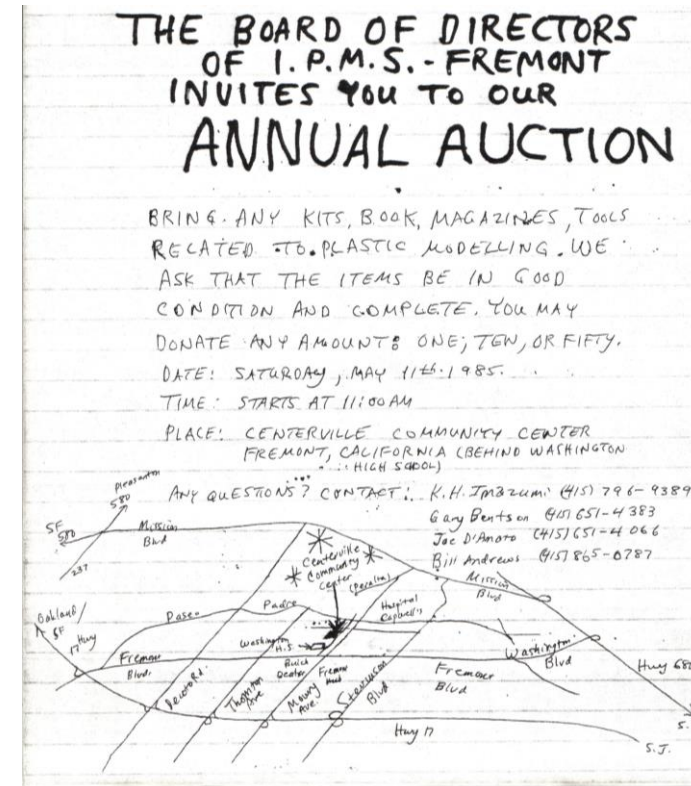 THE BOARD OF DIRECTORS
OF I.P.M.S.-FREMONT
INVITES YOU TO OUR
ANNUAL AUCTION
BRING ANY KITS, BOOK, MAGAZINES, TOOLS
RELATED TO PLASTIC MODELLING. WE
ASK THAT THE ITEMS BE IN GOOD
CONDITION AND COMPLETE. YOU MAY
DONATE ANY AMOUNT: ONE, TEN, OR FIFTY.
DATE: SATURDAY, MAY 11th. 1985.
TIME: STARTS AT 11:00 AM
PLACE: CENTERVILLE COMMUNITY CENTER
FREMONT, CALIFORNIA (BEHIND WASHINGTON
HIGH SCHOOL)
ANY QUESTIONS? CONTACT: K.H. Imazumi (415) 796-9389
Gary Bentson (415) 651-4383
Joe D'Amato (415) 651-4066
Bill Andrews (415) 865-0787
Pleasanton
580
SF
580
Mission
Blvd
237
Centerville
Community
Center
(Peralta)
Mission
Blvd
Oakland/
SF
Hwy
17
Paseo
Padre
Hospital
Washington
H.S
Fremont
Blvd.
Buick
Dealer
Washington
Blvd
Hwy 68
Decoto Rd.
Thornton
Ave
Mowry
Ave.
Stevenson
Blvd
Fremont
Blvd
Hwy 17
S.
S.J.